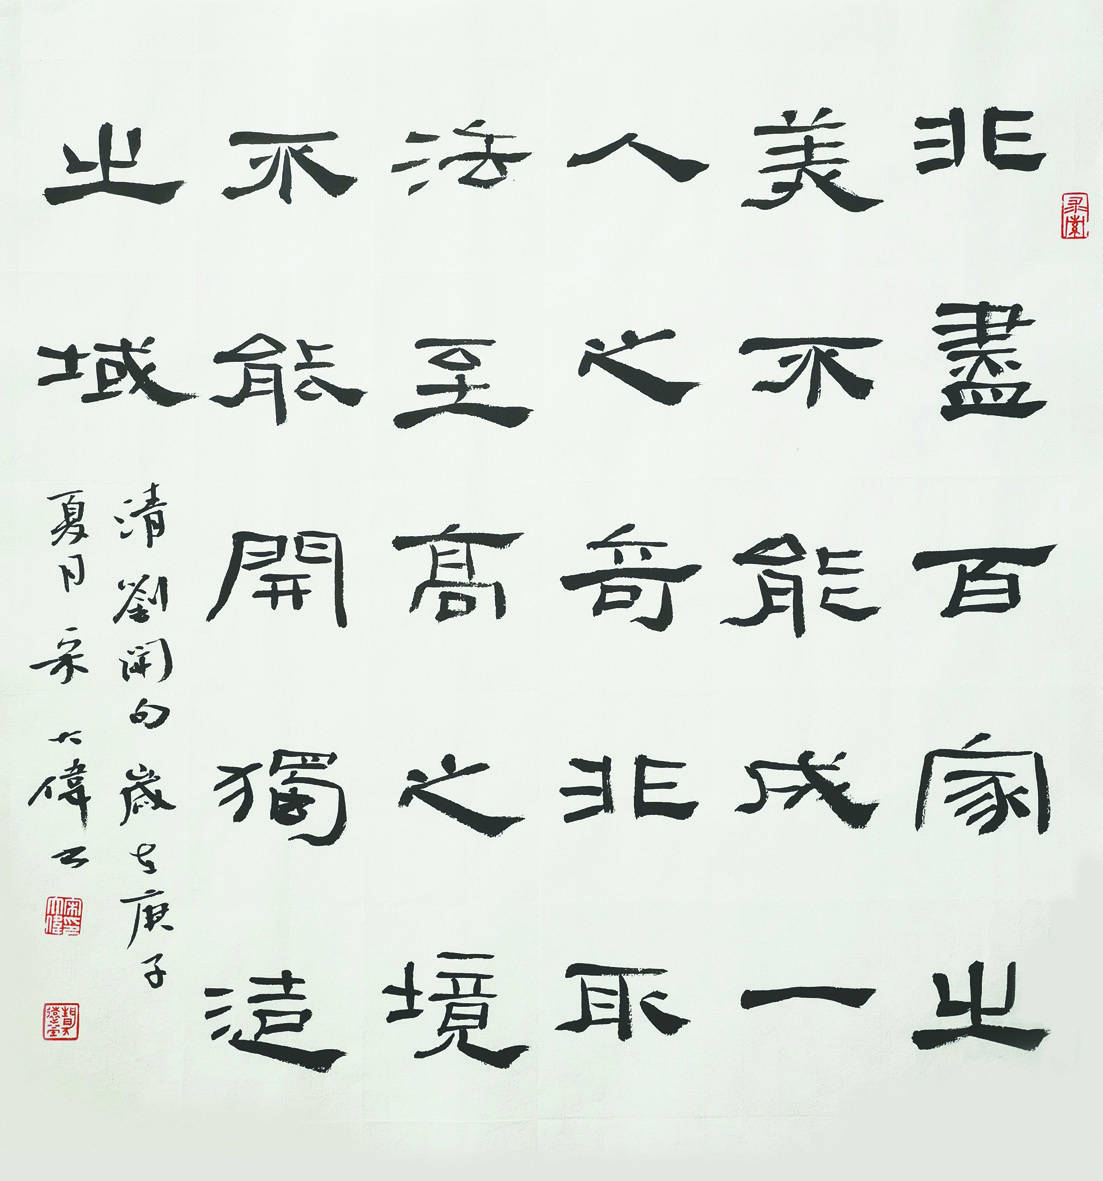 非盡百家之
美不能成一
人之奇非取
法至高之境
不能開獨造
之域
清劉開句歲在庚子
夏月宋大偉書